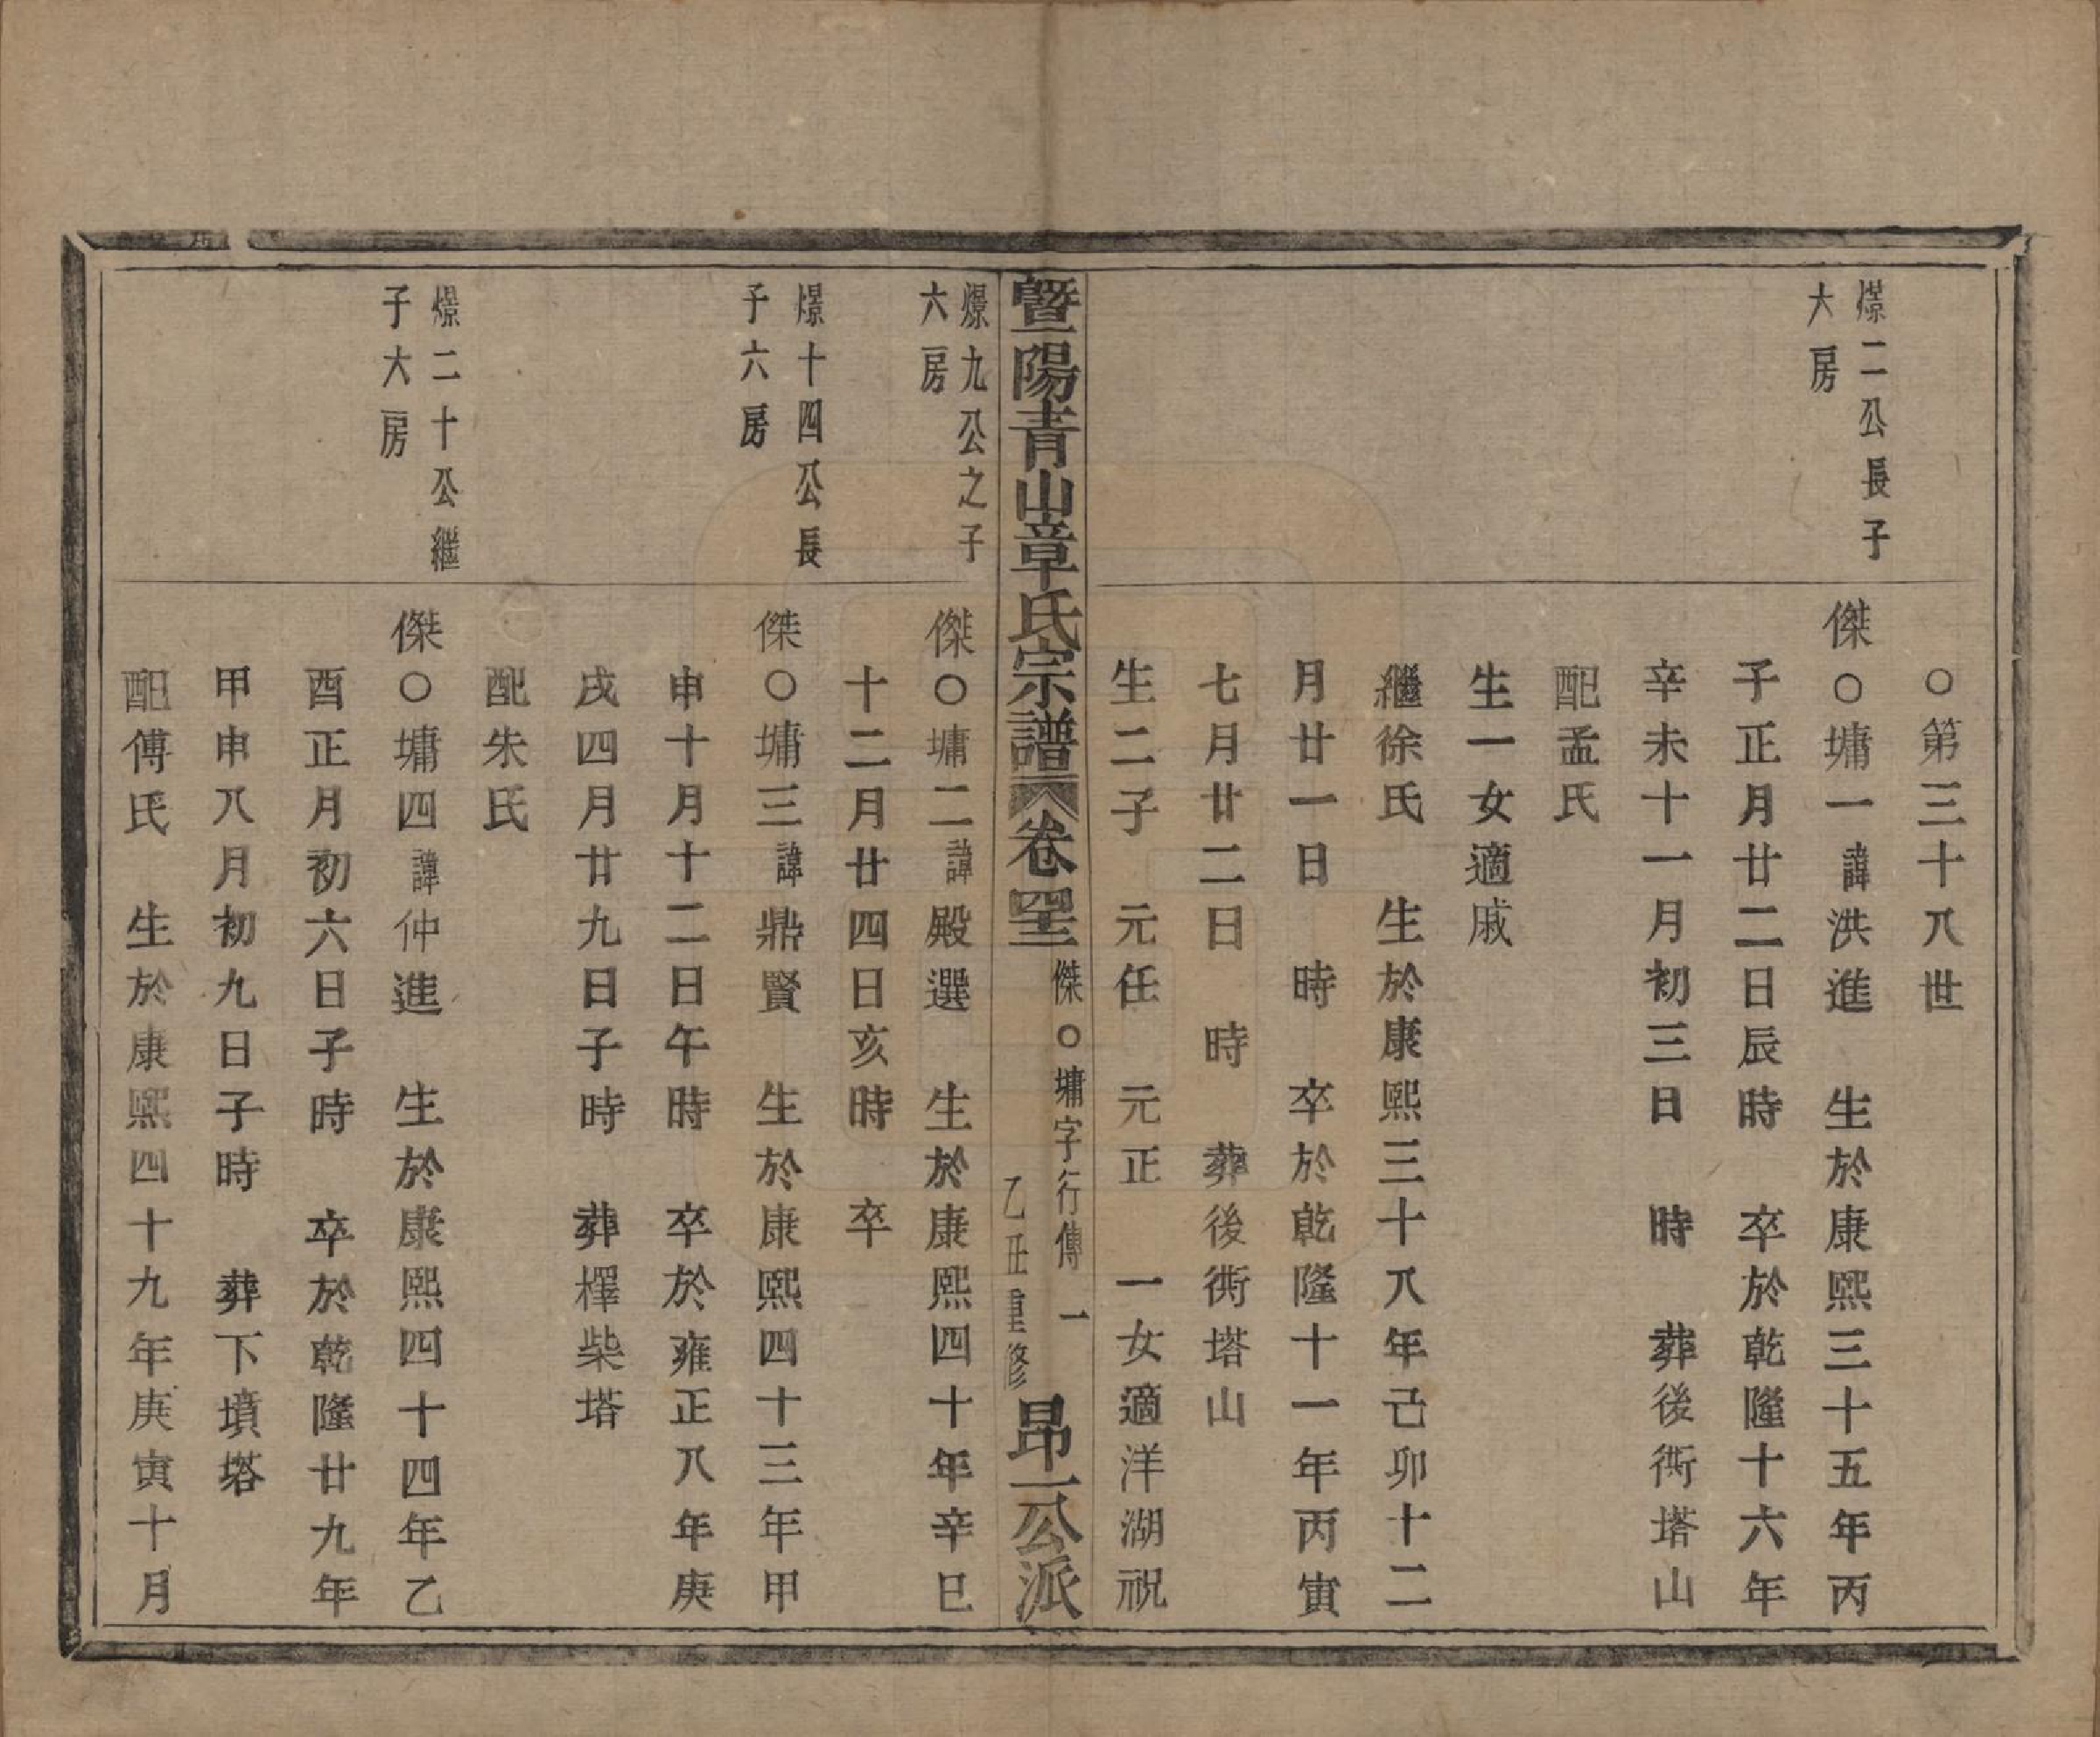 ○第三十八世
㷡二公長子
大房
傑○墉一諱洪進　生於康熙三十五年丙
子正月廿二日辰時　卒於乾隆十六年
辛未十一月初三日　時　葬後衖塔山
配孟氏
生一女適戚
繼徐氏　生於康熙三十八年己卯十二
月廿一日　時　卒於乾隆十一年丙寅
七月廿二日　時　葬後衖塔山
生二子　元任　元正　一女適洋湖祝
暨陽青山章氏宗譜　卷四十三　傑○墉字行傳　一　乙丑重修　昂一公派
㷡九公之子
六房
傑○墉二諱殿選　生於康熙四十年辛巳
十二月廿四日亥時　卒
㷡十四公長
子六房
傑○墉三諱鼎賢　生於康熙四十三年甲
申十月十二日午時　卒於雍正八年庚
戌四月廿九日子時　葬檡柴塔
配朱氏
㷡二十公繼
子大房
傑○墉四諱仲進　生於康熙四十四年乙
酉正月初六日子時　卒於乾隆廿九年
甲申八月初九日子時　葬下墳塔
配傅氏　生於康熙四十九年庚寅十月